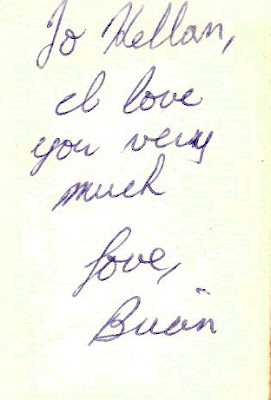 To Kellan,
I love
you very
much
Love,
Brian